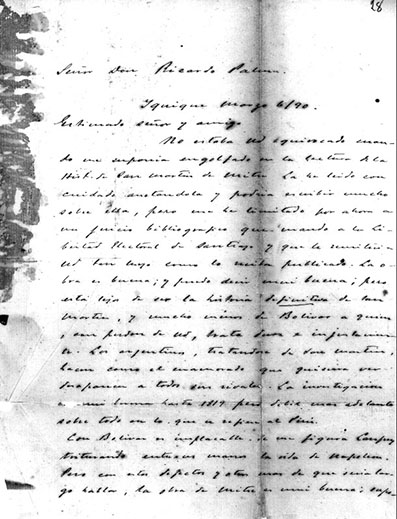 28
Señor Don Ricardo Palma.
Iquique Marzo 6/90.
Estimado señor y amigo
No estaba Ud equivocado cuan-
do me suponia engolfado en la lectura de la
Hist. de San Martin de Mitre. La he leido con
cuidado anotandola y podria escribir mucho
sobre ella, pero me he limitado por ahora a
un juicio bibliografico que mando a la Li-
bertad Electoral de Santiago y que le remitiré a
Ud tan luego como lo vea publicado. La o-
bra es buena; y puedo decir mui buena; pero
está lejos de ser la historia definitiva de San
Martin, y mucho menos de Bolivar a quien,
con perdon de Ud, trata dura e injustamen-
te. Los argentinos, tratandose de San Martin,
hacen como el enamorado que quisiera ver
desaparecer a todos sus rivales. La investigacion
es mui buena hasta 1819 pero debil mas adelante
sobre todo en lo que se refiere al Perú.
Con Bolivar es implacable. Se me figura Lanfrey
triturando entre sus manos la vida de Napoleon.
Pero con estos defectos y otros mas de que seria lar-
go hablar, la obra de Mitre es mui buena;